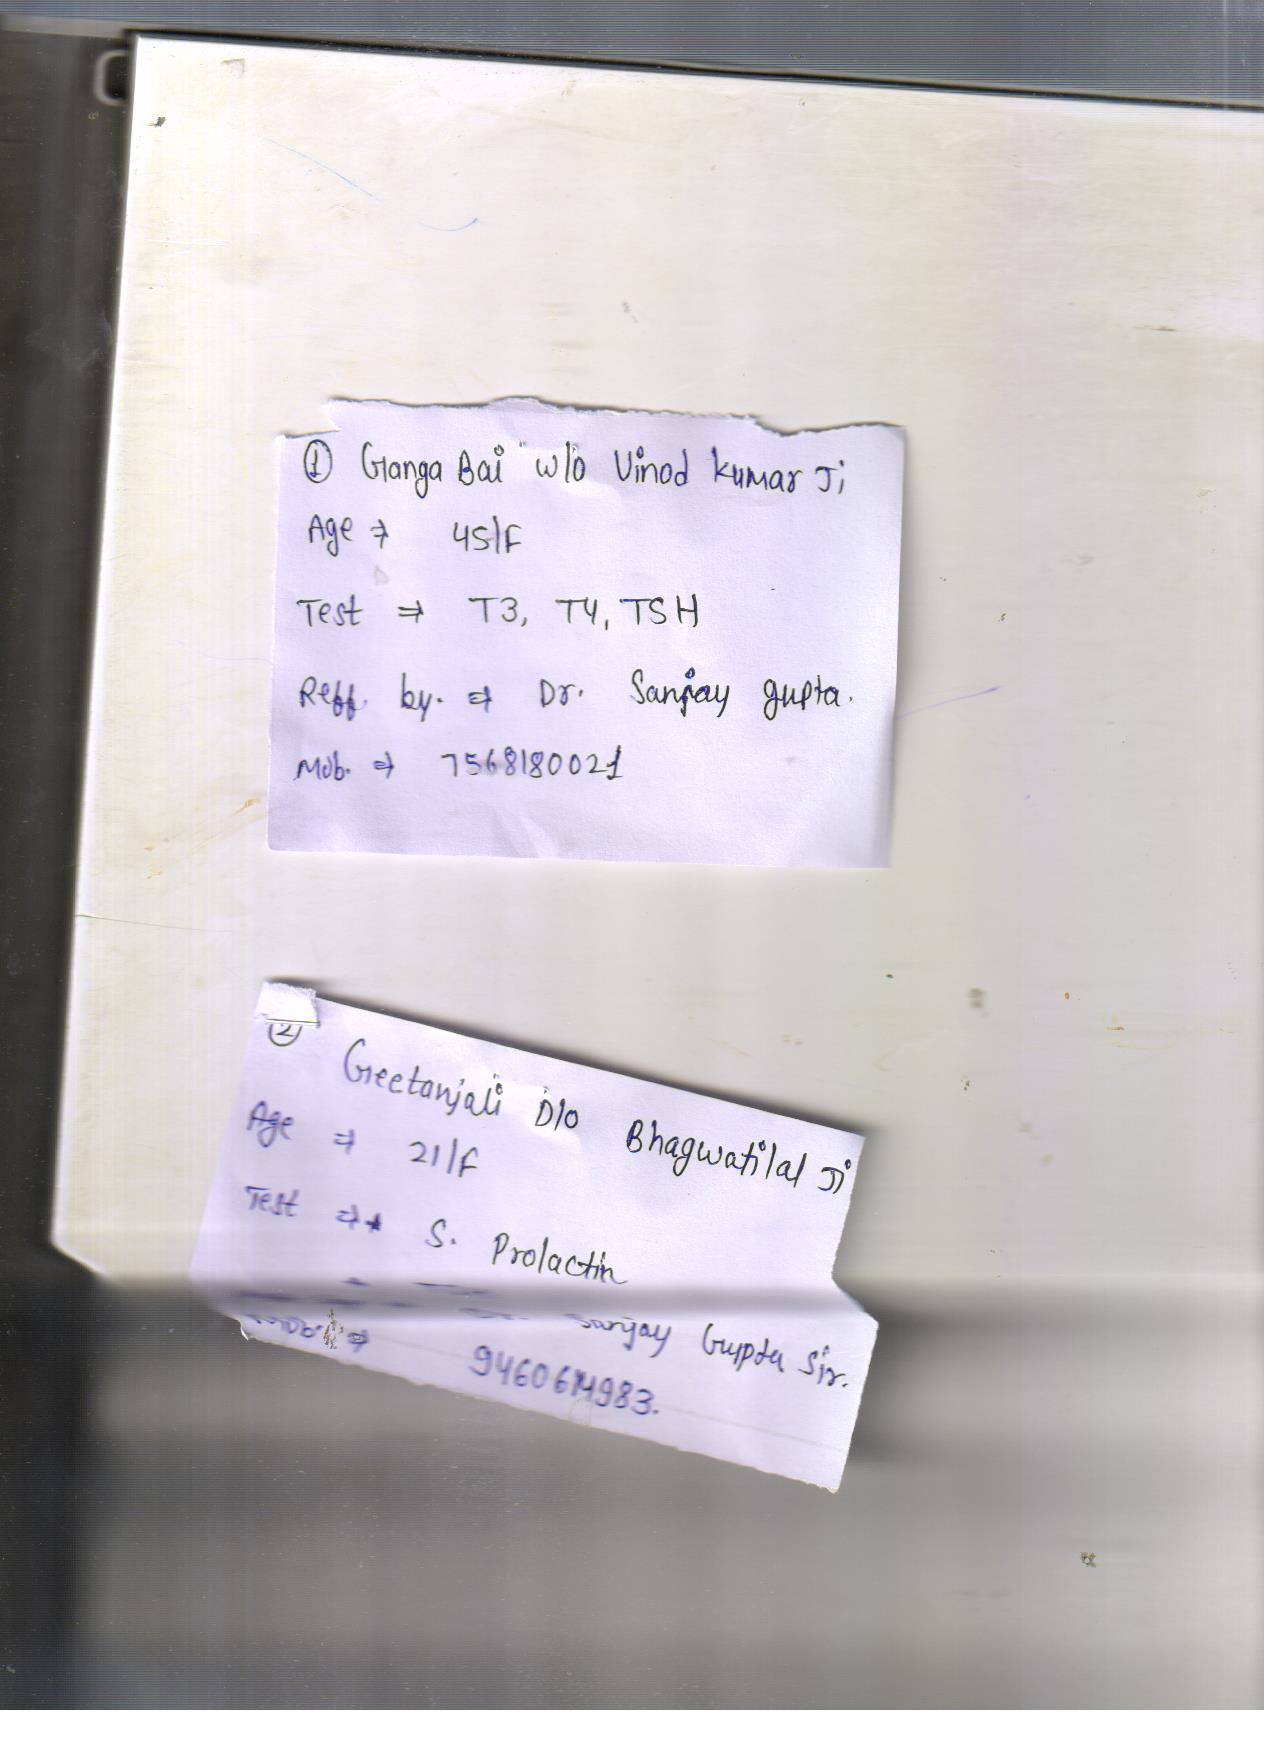 ① Ganga Bai w/o Vinod Kumar Ji
Age ⇒ 45/F
Test ⇒ T3, T4, TSH
Reff. by. ⇒ Dr. Sanjay gupta.
Mob. ⇒ 7568180021
② Geetanjali D/o Bhagwatilal Ji
Age ⇒ 21/F
Test ⇒ S. Prolactin
Sanjay Gupta Sir.
Mob. ⇒